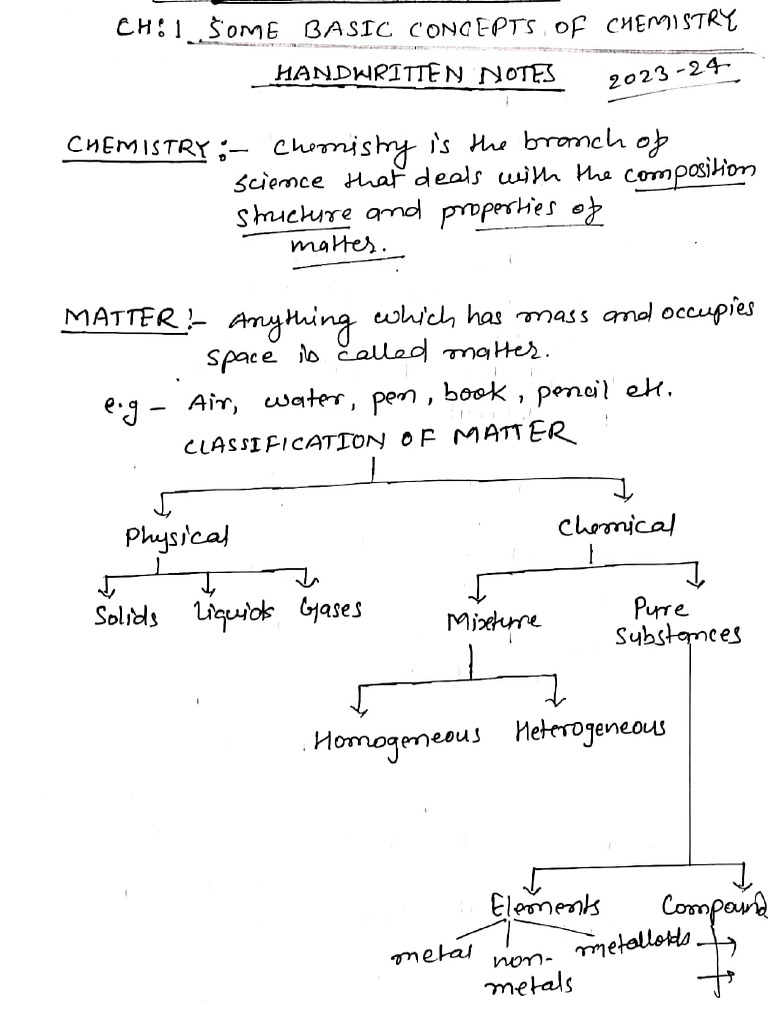 CH:1 SOME BASIC CONCEPTS OF CHEMISTRY
HANDWRITTEN NOTES 2023-24
CHEMISTRY:- Chemistry is the branch of
science that deals with the composition
structure and properties of
matter.
MATTER:- Anything which has mass and occupies
space is called matter.
e.g - Air, water, pen, book, pencil etc.
CLASSIFICATION OF MATTER
Physical Chemical
Solids Liquids Gases
Mixture Pure
Substances
Homogeneous Heterogeneous
Elements Compound
metal non-
metals metalloids